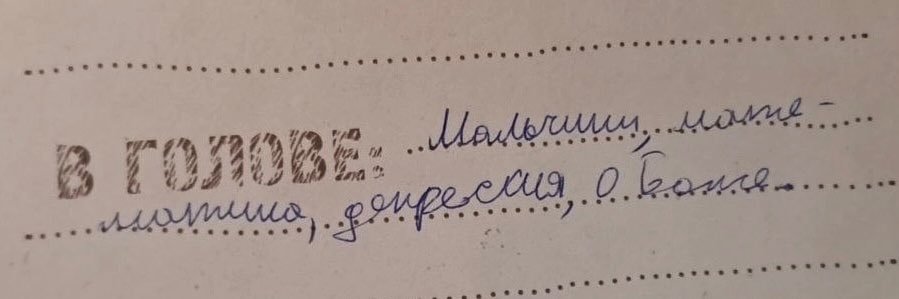 В ГОЛОВЕ: Мальчики, мате-
матика, депрессия, о Боже.